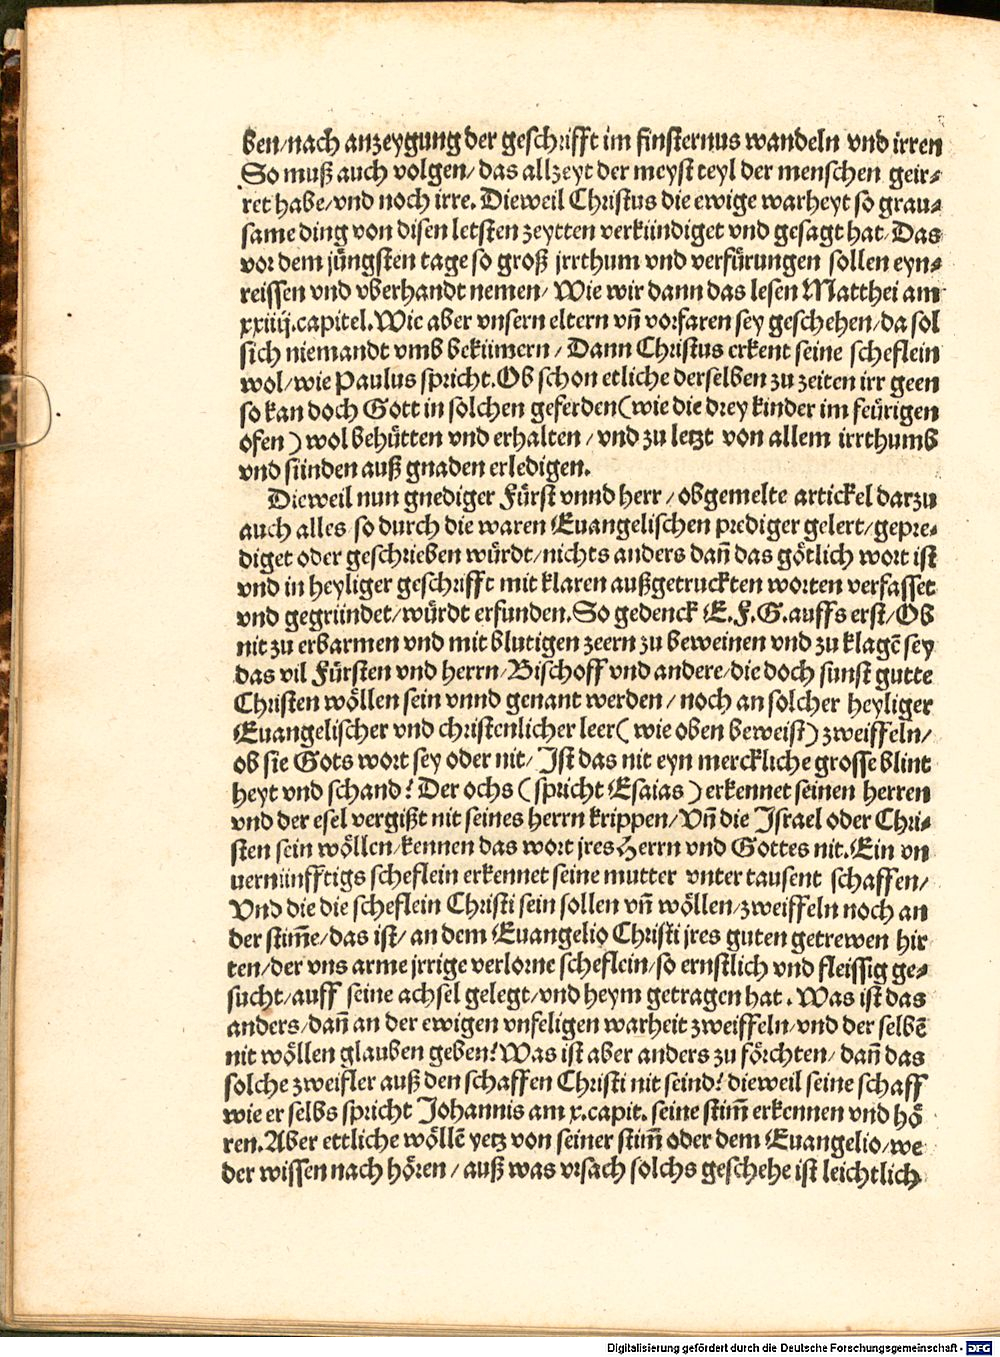 ben/nach anzeygung der geschrifft im finsternus wandeln vnd irren
So muß auch volgen/das allzeyt der meyst teyl der menschen geir⸗
ret habe/vnd noch irre. Dieweil Christus die ewige warheyt so grau⸗
same ding von disen letsten zeytten verkündiget vnd gesagt hat/Das
vor dem jüngsten tage so groß jrrthum vnd verfürungen sollen eyn⸗
reissen vnd vberhandt nemen/Wie wir dann das lesen Matthei am
xxiiij.capitel.Wie aber vnsern eltern vñ vorfaren sey geschehen/da sol
sich niemandt vmb bekümern/Dann Christus erkent seine scheflein
wol/wie Paulus spricht.Ob schon etliche derselben zu zeiten irr geen
so kan doch Gott in solchen geferden(wie die drey kinder im feürigen
ofen)wol behütten vnd erhalten/vnd zu letzt von allem irrthumb
vnd sünden auß gnaden erledigen.
Dieweil nun gnediger Fürst vnnd herr/obgemelte artickel darzu
auch alles so durch die waren Euangelischen prediger gelert/gepre⸗
diget oder geschrieben würdt/nichts anders dañ das götlich wort ist
vnd in heyliger geschrifft mit klaren außgetruckten worten verfasset
vnd gegründet/würdt erfunden.So gedenck E.F.G.auffs erst/Ob
nit zu erbarmen vnd mit blutigen zeern zu beweinen vnd zu klagē sey
das vil Fürsten vnd herrn/Bischoff vnd andere/die doch sunst gutte
Christen wöllen sein vnnd genant werden/noch an solcher heyliger
Euangelischer vnd christenlicher leer(wie oben beweist)zweiffeln/
ob sie Gots wort sey oder nit/Ist das nit eyn merckliche grosse blint
heyt vnd schand? Der ochs(spricht Esaias)erkennet seinen herren
vnd der esel vergißt nit seines herrn krippen/Vñ die Israel oder Chri⸗
sten sein wöllen/kennen das wort jres Herrn vnd Gottes nit.Ein vn
uernünfftigs scheflein erkennet seine mutter vnter tausent schaffen/
Vnd die die scheflein Christi sein sollen vñ wöllen/zweiffeln noch an
der stim̄e/das ist/an dem Euangelio Christi jres guten getrewen hir
ten/der vns arme jrrige verlorne scheflein/so ernstlich vnd fleissig ge⸗
sucht/auff seine achsel gelegt/vnd heym getragen hat. Was ist das
anders/dañ an der ewigen vnfeligen warheit zweiffeln/vnd der selbē
nit wöllen glauben geben?Was ist aber anders zu förchten/dañ das
solche zweifler auß den schaffen Christi nit seind?dieweil seine schaff
wie er selbs spricht Johannis am x.capit. seine stim̄ erkennen vnd hö
ren.Aber ettliche wöllē yetz von seiner stim̄ oder dem Euangelio/we
der wissen nach hören/auß was vrsach solchs geschehe ist leichtlich
Digitalisierung gefördert durch die Deutsche Forschungsgemeinschaft - DFG